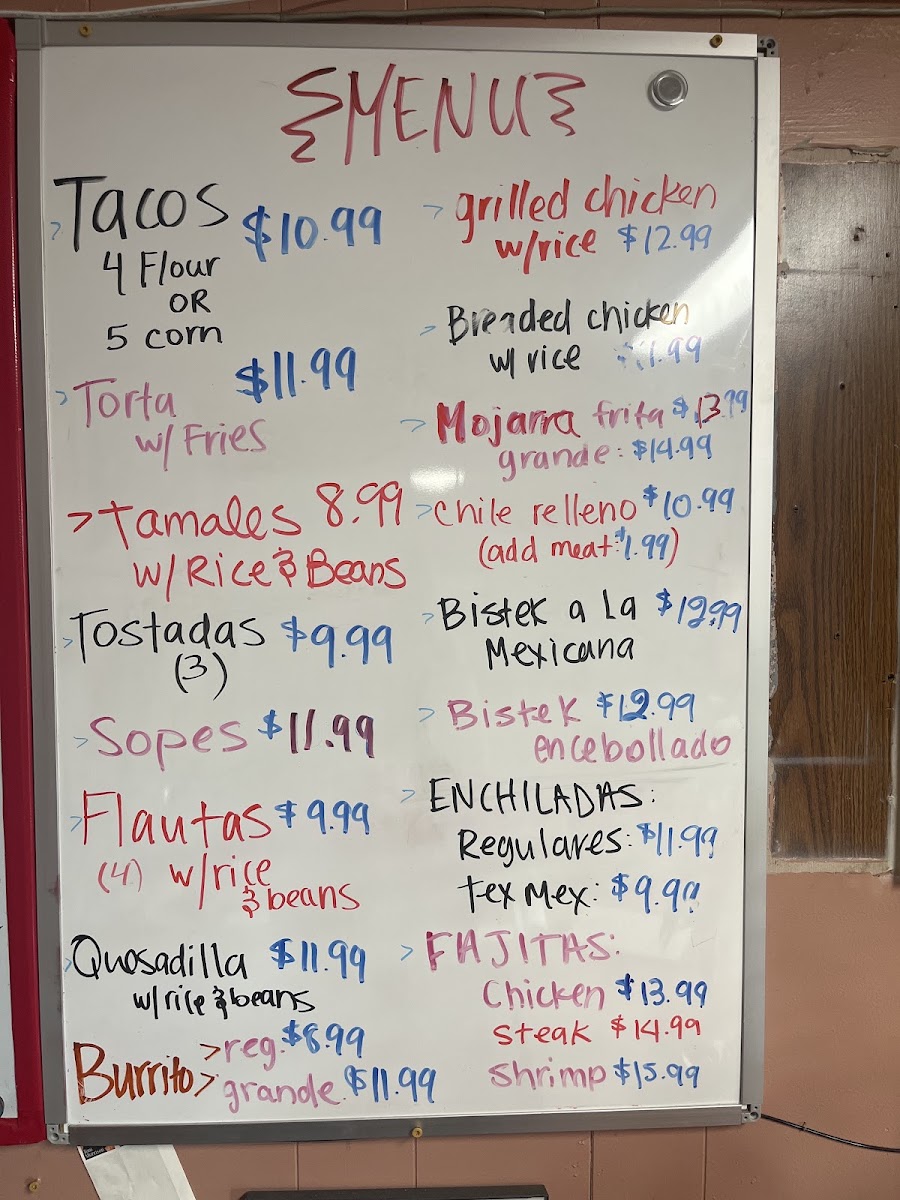 MENU
Tacos $10.99
4 Flour
OR
5 corn
Torta $11.99
w/ Fries
> Tamales 8.99
w/ Rice & Beans
> Tostadas $9.99
(3)
> Sopes $11.99
> Flautas $9.99
(4) w/rice
& beans
> Quosadilla $11.99
w/rice & beans
Burrito > reg. $8.99
> grande. $11.99
> grilled chicken
w/rice $12.99
> Breaded chicken
w/ rice $11.99
> Mojarra frita $13.99
grande: $14.99
> Chile relleno $10.99
(add meat: $1.99)
> Bistek a La $12.99
Mexicana
> Bistek $12.99
encebollado
> ENCHILADAS:
Regulares: $11.99
Tex Mex: $9.99
> FAJITAS:
Chicken $13.99
Steak $14.99
Shrimp $15.99